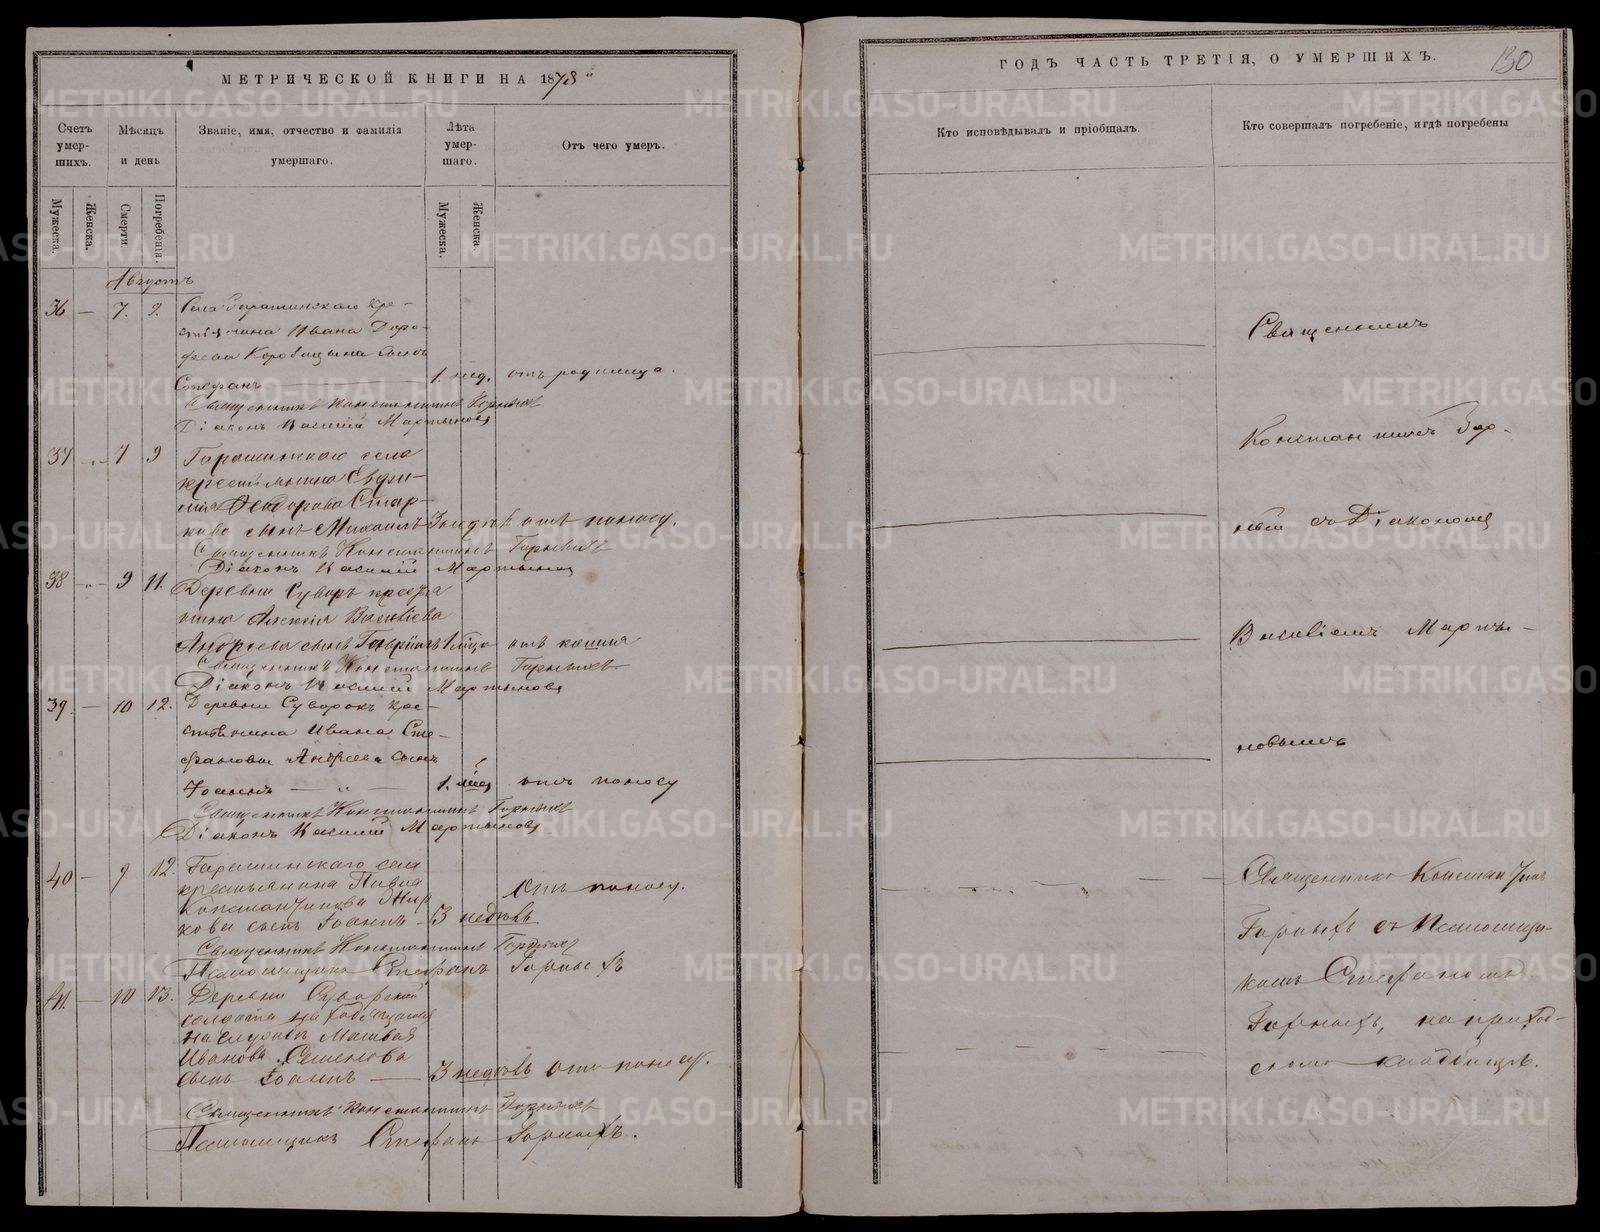 МЕТРИЧЕСКОЙ КНИГИ НА 1878
Счетъ умерших.
Мѣсяцъ и день
Званіе, имя, отчество и фамилія умершаго.
Лѣта умершаго.
Отъ чего умеръ.
Мужеска.
Женска.
Смерти.
Погребенія.
Мужеска.
Женска.
Августъ
36 — 7. 9. Села Гарашинскаго кре-
стьянина Ивана Доро-
феева Коробицына сынъ
Стефанъ 1. нед. отъ родимца.
Священникъ Константинъ Горныхъ
Діаконъ Василій Мартыновъ
37 7 9 Гарашинскаго села
крестьянина Евфи-
мія Ѳеодорова Стар-
кова сынъ Михаилъ 3 недѣл отъ поносу.
Священникъ Константинъ Горныхъ
Діаконъ Василій Мартыновъ
38 9 11. Деревни Суворъ крестья
нина Алексія Василіева
Андреева сынъ Гавріилъ 1 мѣсяца отъ кашля
Священникъ Константинъ Горныхъ
Діаконъ Василій Мартыновъ
39. — 10 12. Деревни Суворокъ кре-
стьянина Ивана Сте-
фанова Андреева сынъ
Іоаннъ 1. мѣс. отъ поносу
Священникъ Константинъ Горныхъ
Діаконъ Василій Мартыновъ
40 — 9 12. Гарашинскаго села
крестьянина Павла
Константинова
кова сынъ Іоаннъ 3 недѣль отъ поносу.
Священникъ Константинъ Горныхъ
Псаломщикъ Стефанъ Горныхъ
41. — 10 13. Деревни
солдата
на службѣ Матвѣя
Иванова Семенова
сынъ Іоаннъ — 3 недѣль отъ поносу.
Священникъ Константинъ Горныхъ
Псаломщикъ Стефанъ Горныхъ.
ГОДЪ ЧАСТЬ ТРЕТІЯ, О УМЕРШИХЪ.
130
Кто исповѣдывалъ и пріобщалъ.
Кто совершалъ погребеніе, и гдѣ погребены
Священникъ
Константинъ Гор-
ный съ Діакономъ
Василіемъ Марты-
новымъ
Священникъ Константинъ
Горныхъ съ Псаломщи-
комъ Стефаномъ
Горныхъ, на приход-
скомъ кладбищѣ.
METRIKI.GASO-URAL.RU